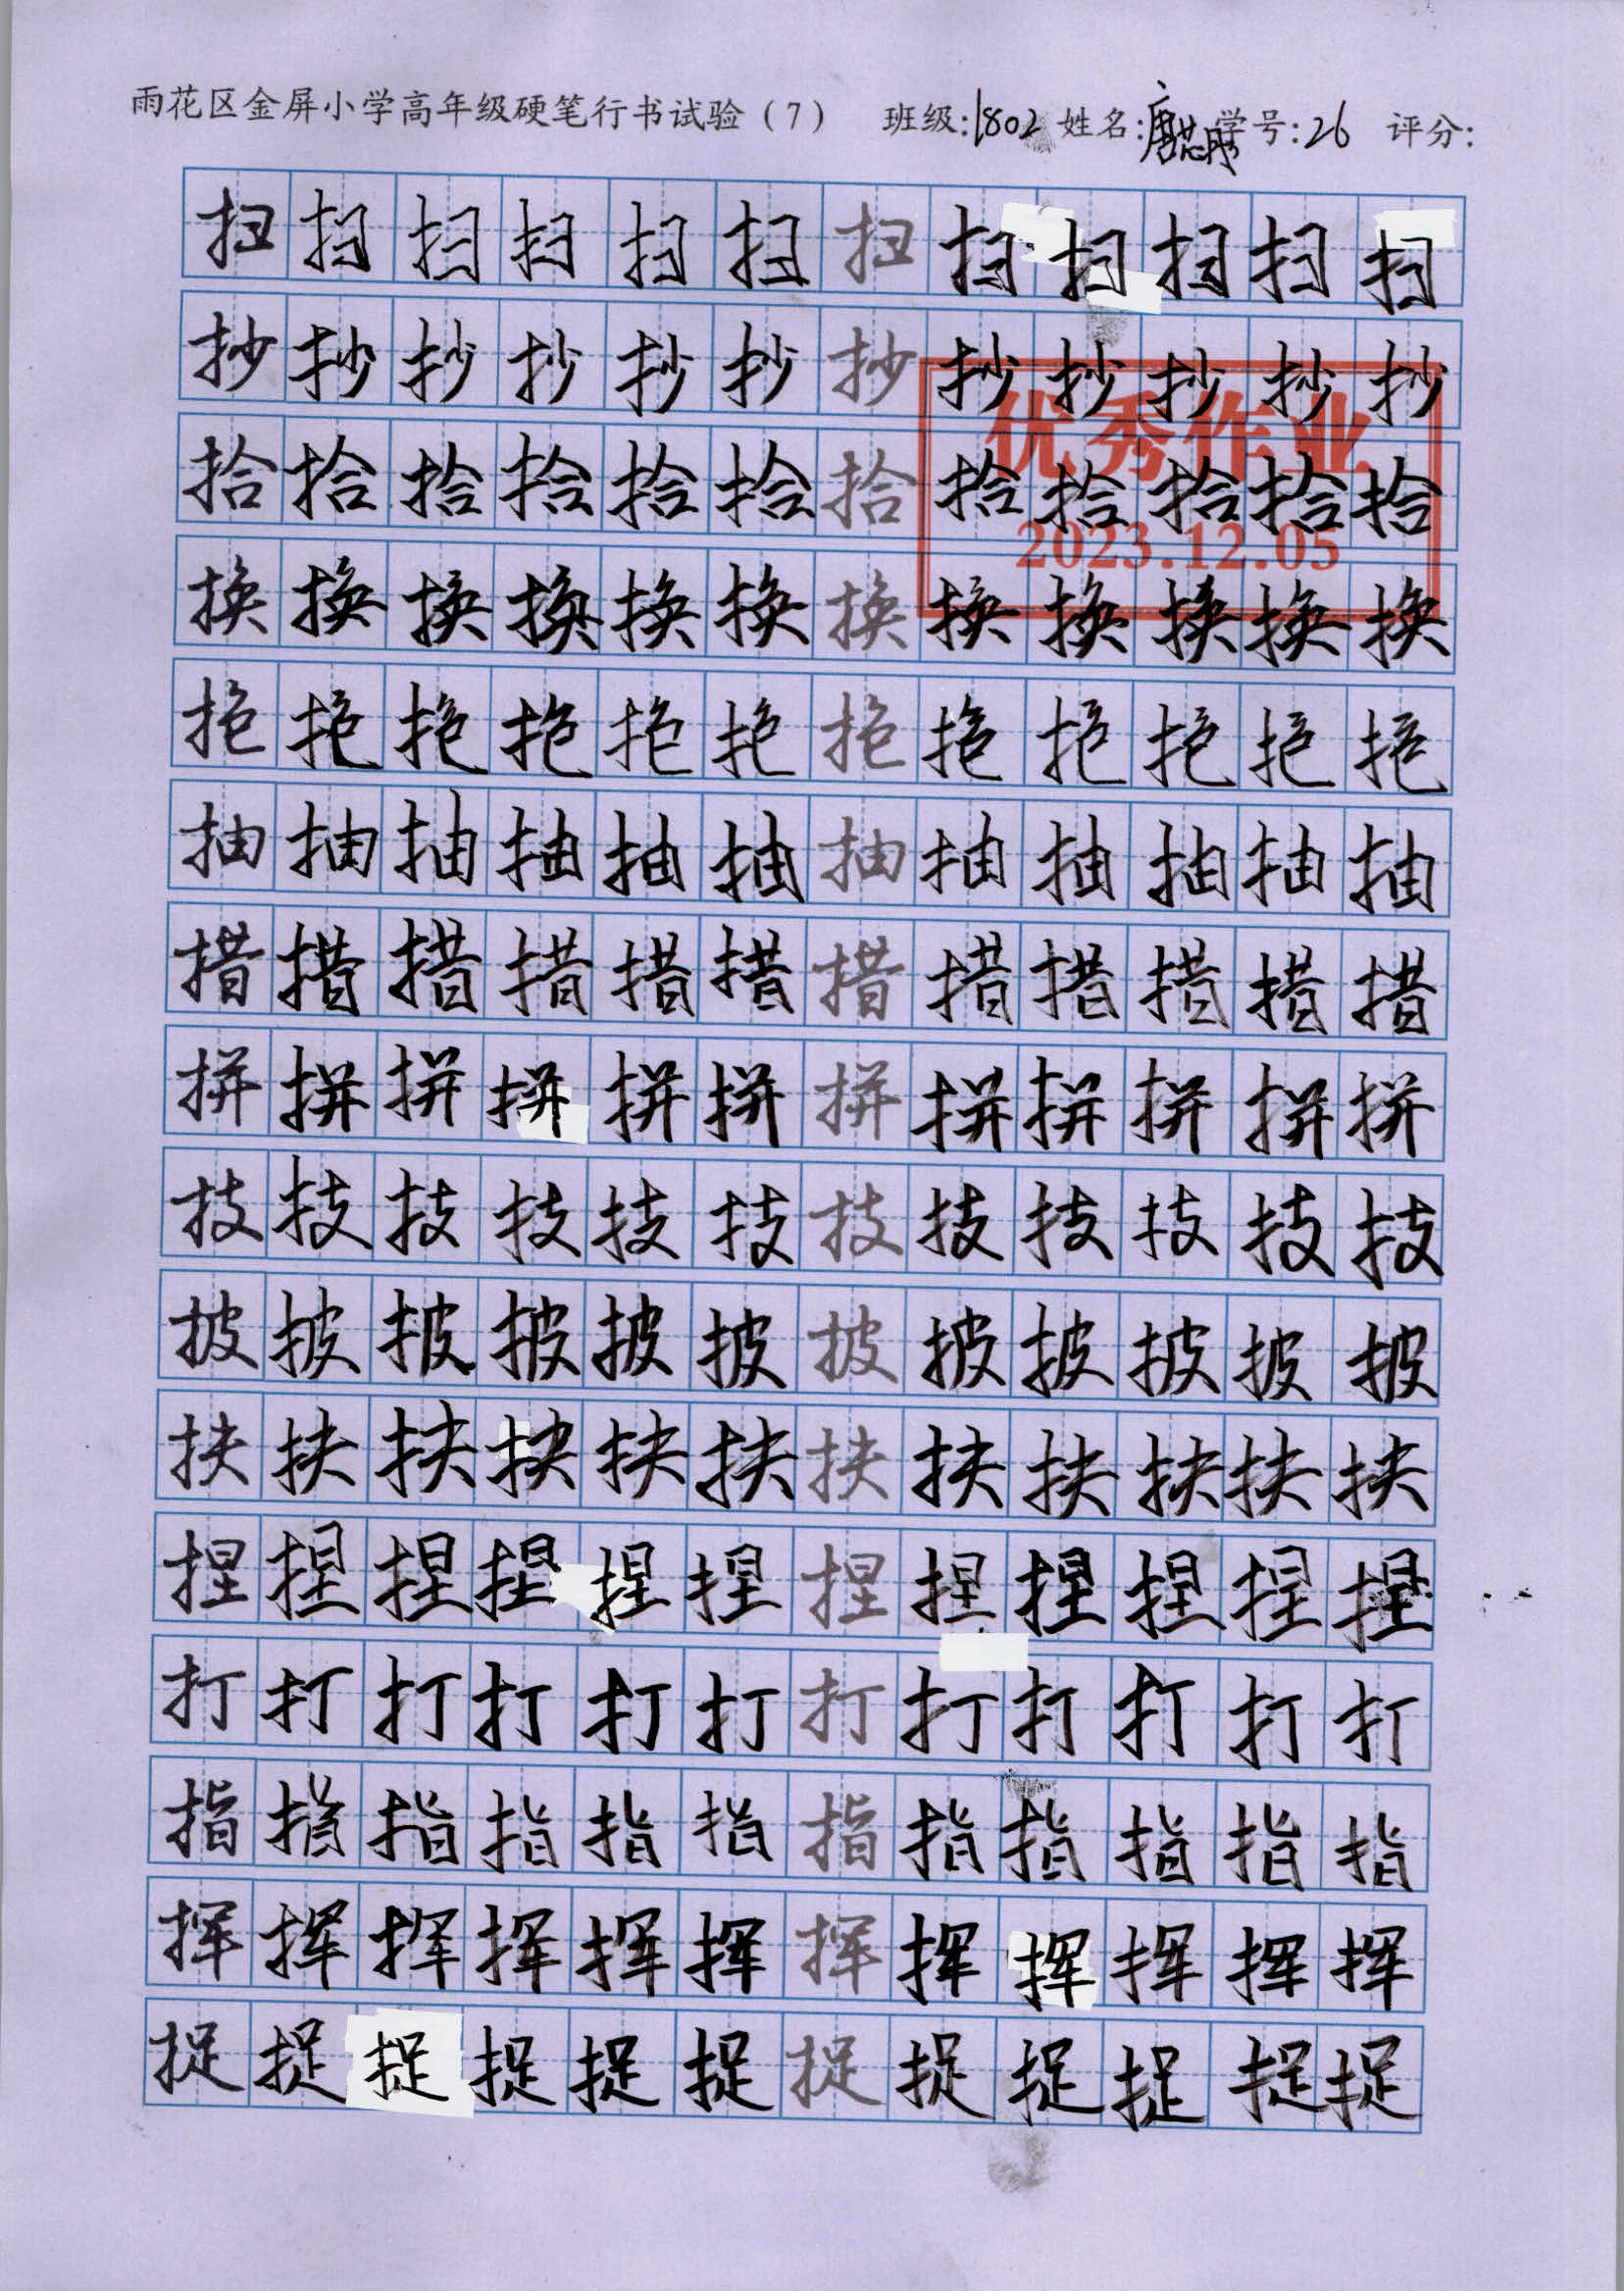 雨花区金屏小学高年级硬笔行书试验（7） 班级:1802 姓名:唐 学号:26 评分:
扫扫扫扫扫扫扫扫扫扫扫扫
抄抄抄抄抄抄抄抄抄抄抄抄
优秀作业
拾拾拾拾拾拾拾拾拾拾拾拾
2023.12.05
换换换换换换换换换换换换
抱抱抱抱抱抱抱抱抱抱抱抱
抽抽抽抽抽抽抽抽抽抽抽抽
措措措措措措措措措措措措
拼拼拼拼拼拼拼拼拼拼拼拼
技技技技技技技技技技技技
披披披披披披披披披披披披
扶扶扶扶扶扶扶扶扶扶扶扶
捏捏捏捏捏捏捏捏捏捏捏捏
打打打打打打打打打打打打
指指指指指指指指指指指指
挥挥挥挥挥挥挥挥挥挥挥挥
捉捉捉捉捉捉捉捉捉捉捉捉